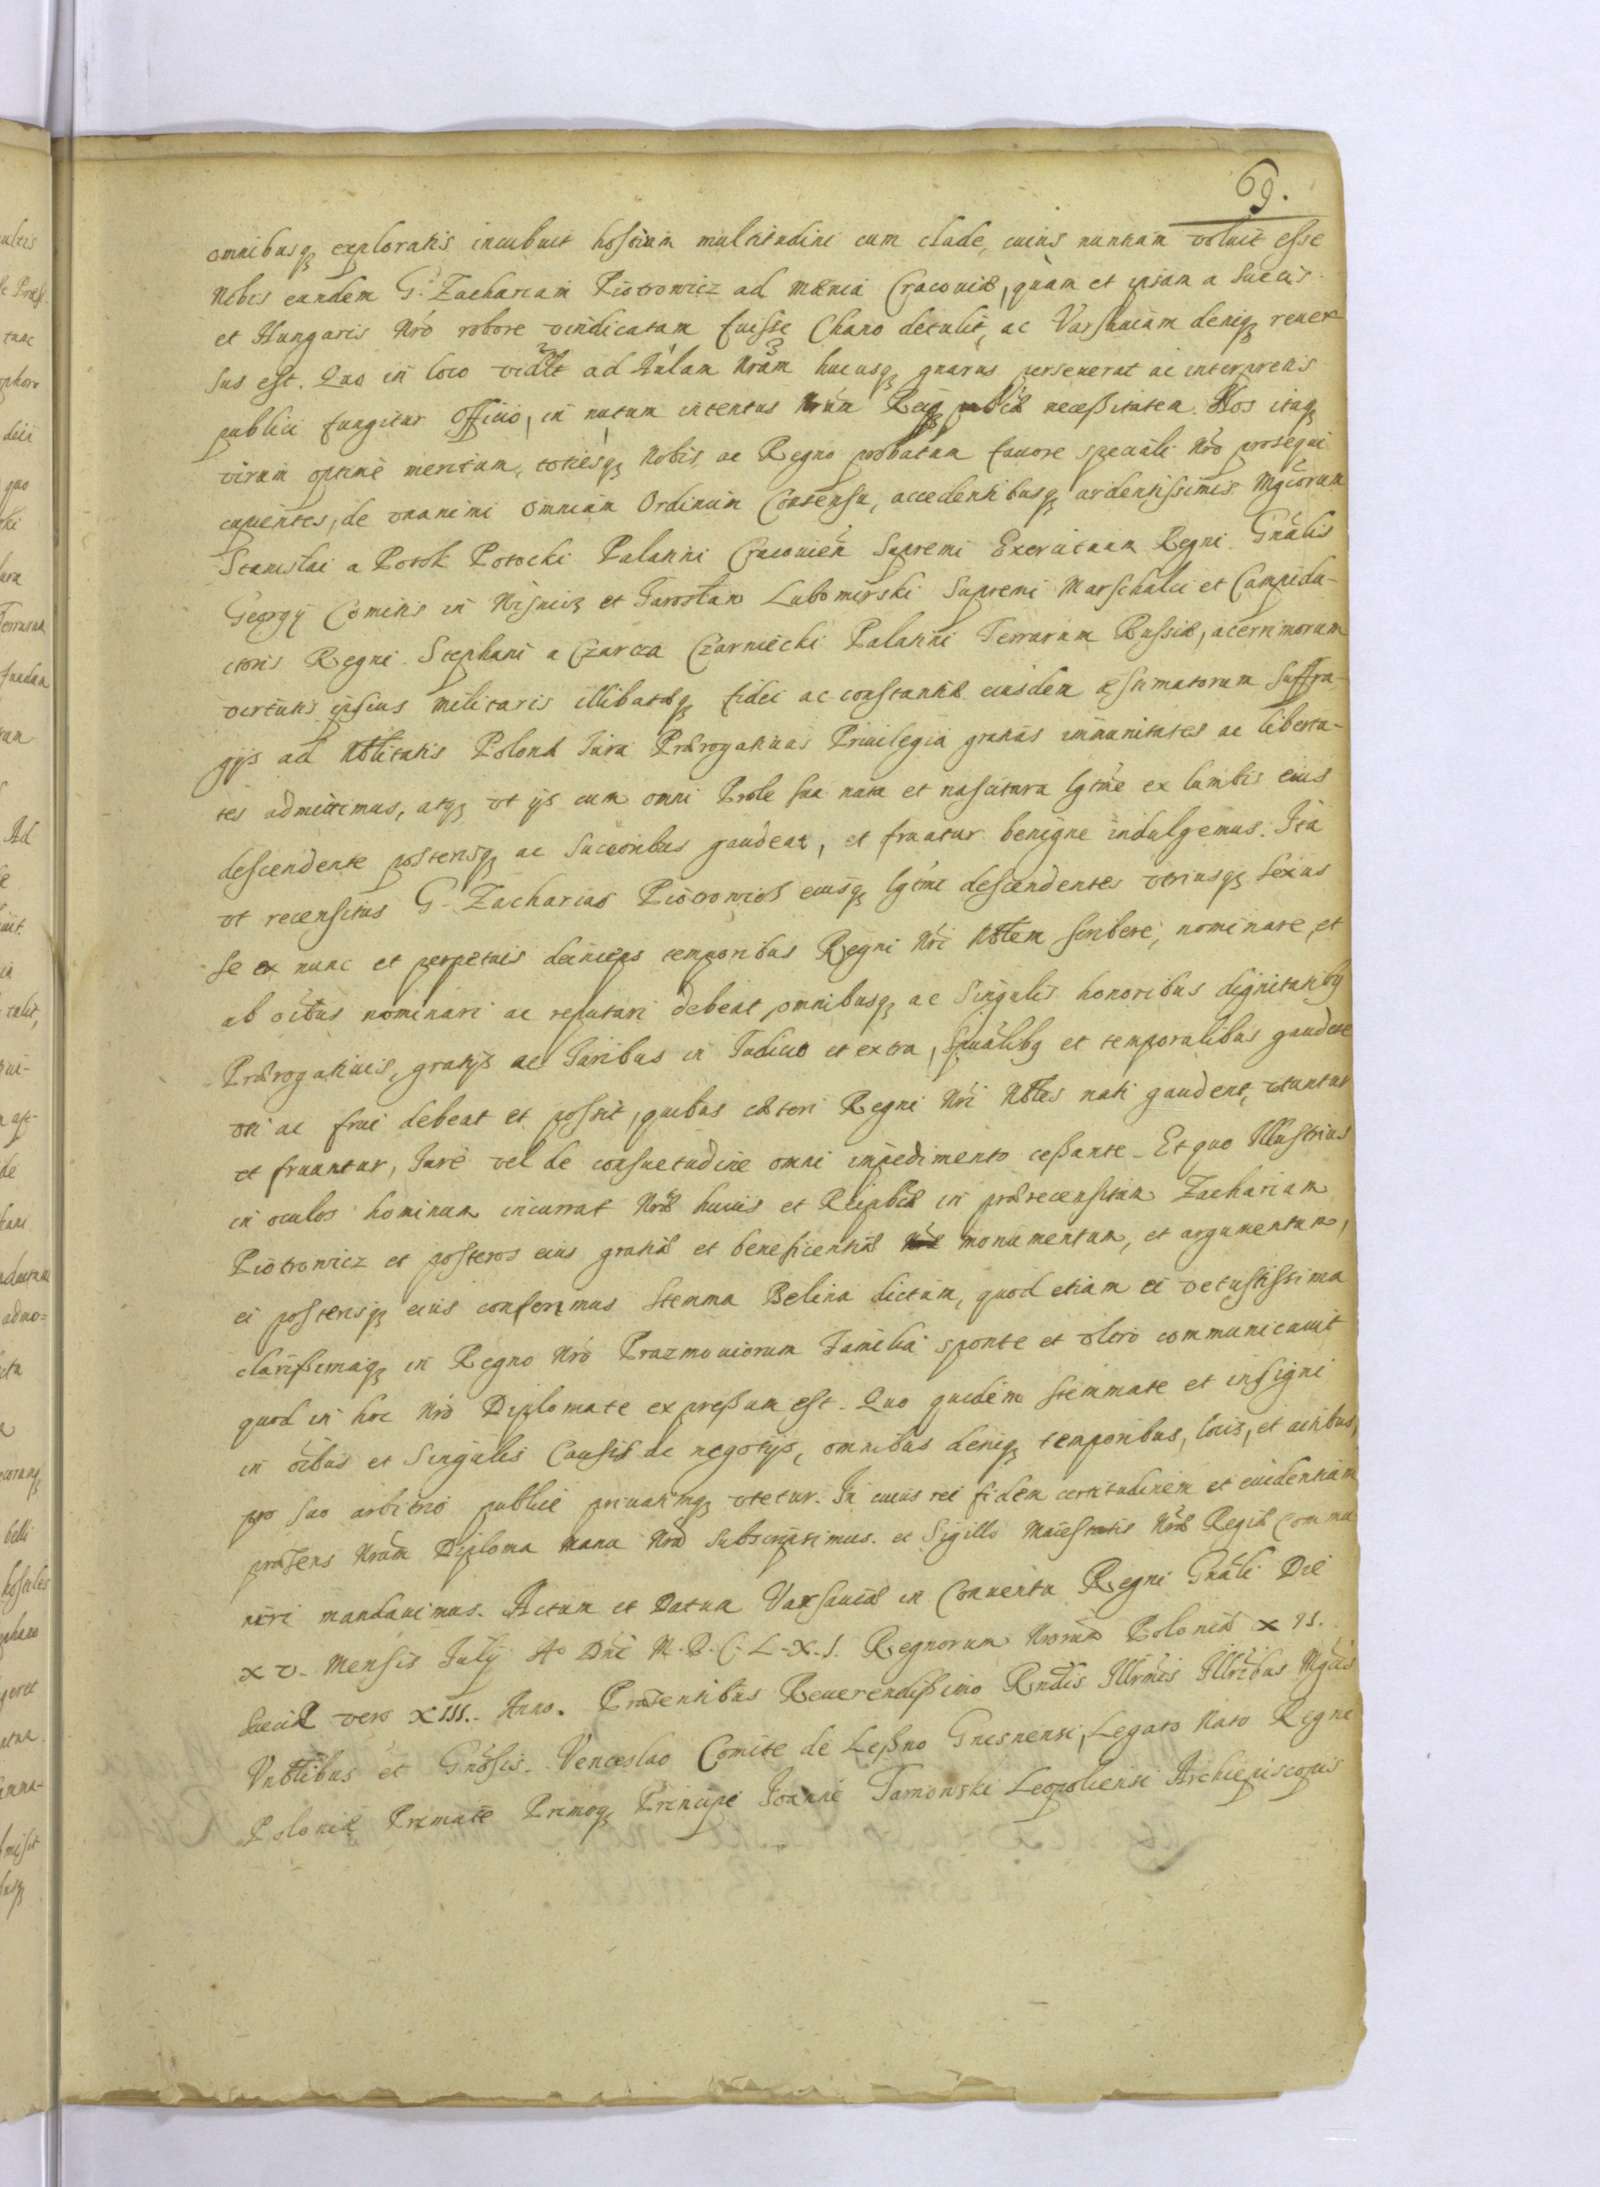 69.
omnibusq exploratis incubuit hostium multitudini cum clade, cuius nuntium voluit esse
Nobis eundem G. Zachariam Piotrowicz ad mænia Cracoviæ, quam et ipsam a Suecis
et Hungaris Nro robore vindicatam fuisse Chano detulit, ac Varsaviam deniq rever
sus est. Quo in loco ad Aulam Nram hucusq gnarus perseuerat ac interpretis
publici fungitur Officio, in nutum intentus Nrum Reiq publicæ neceßitatem. Nos itaq
virum optime meritum, totiesq Nobis ac Regno probatum favore speciali Nro prosequi
cupientes, de vnanimi Omnium Ordinum Consensu, accedentibusq ardentissimis Mgcorum
Stanislai a Potok Potocki Palatini Cracovien Supremi Exercituum Regni Gnalis
Georgij Comitis in Wisnicz et Jaroslaw Lubomirski Supremi Marschalci et Campidu-
ctoris Regni. Stephani a Czarca Czarniecki Palatini Terrarum Russiæ, acerrimorum
virtutis ipsius militaris illibatæq fidei ac constantiæ eiusdem æstimatorum suffra-
gijs ad Nblitatis Polonæ Iura Prærogatiuas Priuilegia gratias immunitates ac liberta-
tes admittimus, atq vt ijs cum omni Prole sua nata et nascitura lgtme ex lumbis eius
descendente posterisq ac Succoribus gaudeat, et fruatur benigne indulgemus. Ita
vt recensitus G. Zacharias Piotrowicz eiusq lgtmi descendentes vtriusq sexus
se ex nunc et perpetuis deinceps temporibus Regni Nri Nblem scribere, nominare, et
ab oibus nominari ac reputari debeat, omnibusq ac Singulis honoribus dignitatibq
Prærogatiuis, gratijs ac Iuribus in Iudicio et extra, Spualibq et temporalibus gaudere
vti ac frui debeat et possit, quibus cæteri Regni Nri Nbles nati gaudent, vtuntur
et fruuntur, Iure vel de consuetudine omni impedimento ceßante. Et quo Illustrius
in oculos hominum incurrat Nræ huius et Reipblcæ in prærecensitum Zachariam
Piotrowicz et posteros eius gratiæ et beneficentiæ monumentum, et argumentum,
ei posterisq eius conferimus Stemma Belina dictum, quod etiam ei vetustissima
clarißimaq in Regno Nro Prazmoviorum Familia sponte et vltro communicauit
quod in hoc Nro Diplomate expreßum est. Quo quidem stemmate et insigni
in oibus et Singulis Causis de negotijs, omnibus deniq temporibus, locis, et actibus,
pro suo arbitrio publice priuatimq vtetur. In cuius rei fidem certitudinem et euidentiam
præsens Nrum Diploma manu Nra Subscripsimus. et Sigillo Maiestatis Nræ Regiæ Commu
niri mandauimus. Actum et Datum Varsaviæ in Conuentu Regni Gnali Die
XV. Mensis Iulij Ao Dni M.D.C.L.X.I. Regnorum Nrorum Poloniæ XIS.
Sueciæ vero XIII. Anno. Præsentibus Reuerendißimo Rndis Illrmis Illribus Mgcis
Vnblibus et Gnosis. Venceslao Comite de Leßno Gnesnensi, Legato Nato Regni
Poloniæ Primate Primoq Principe Ioanne Tarnowski Leopoliensi Archiepiscopis